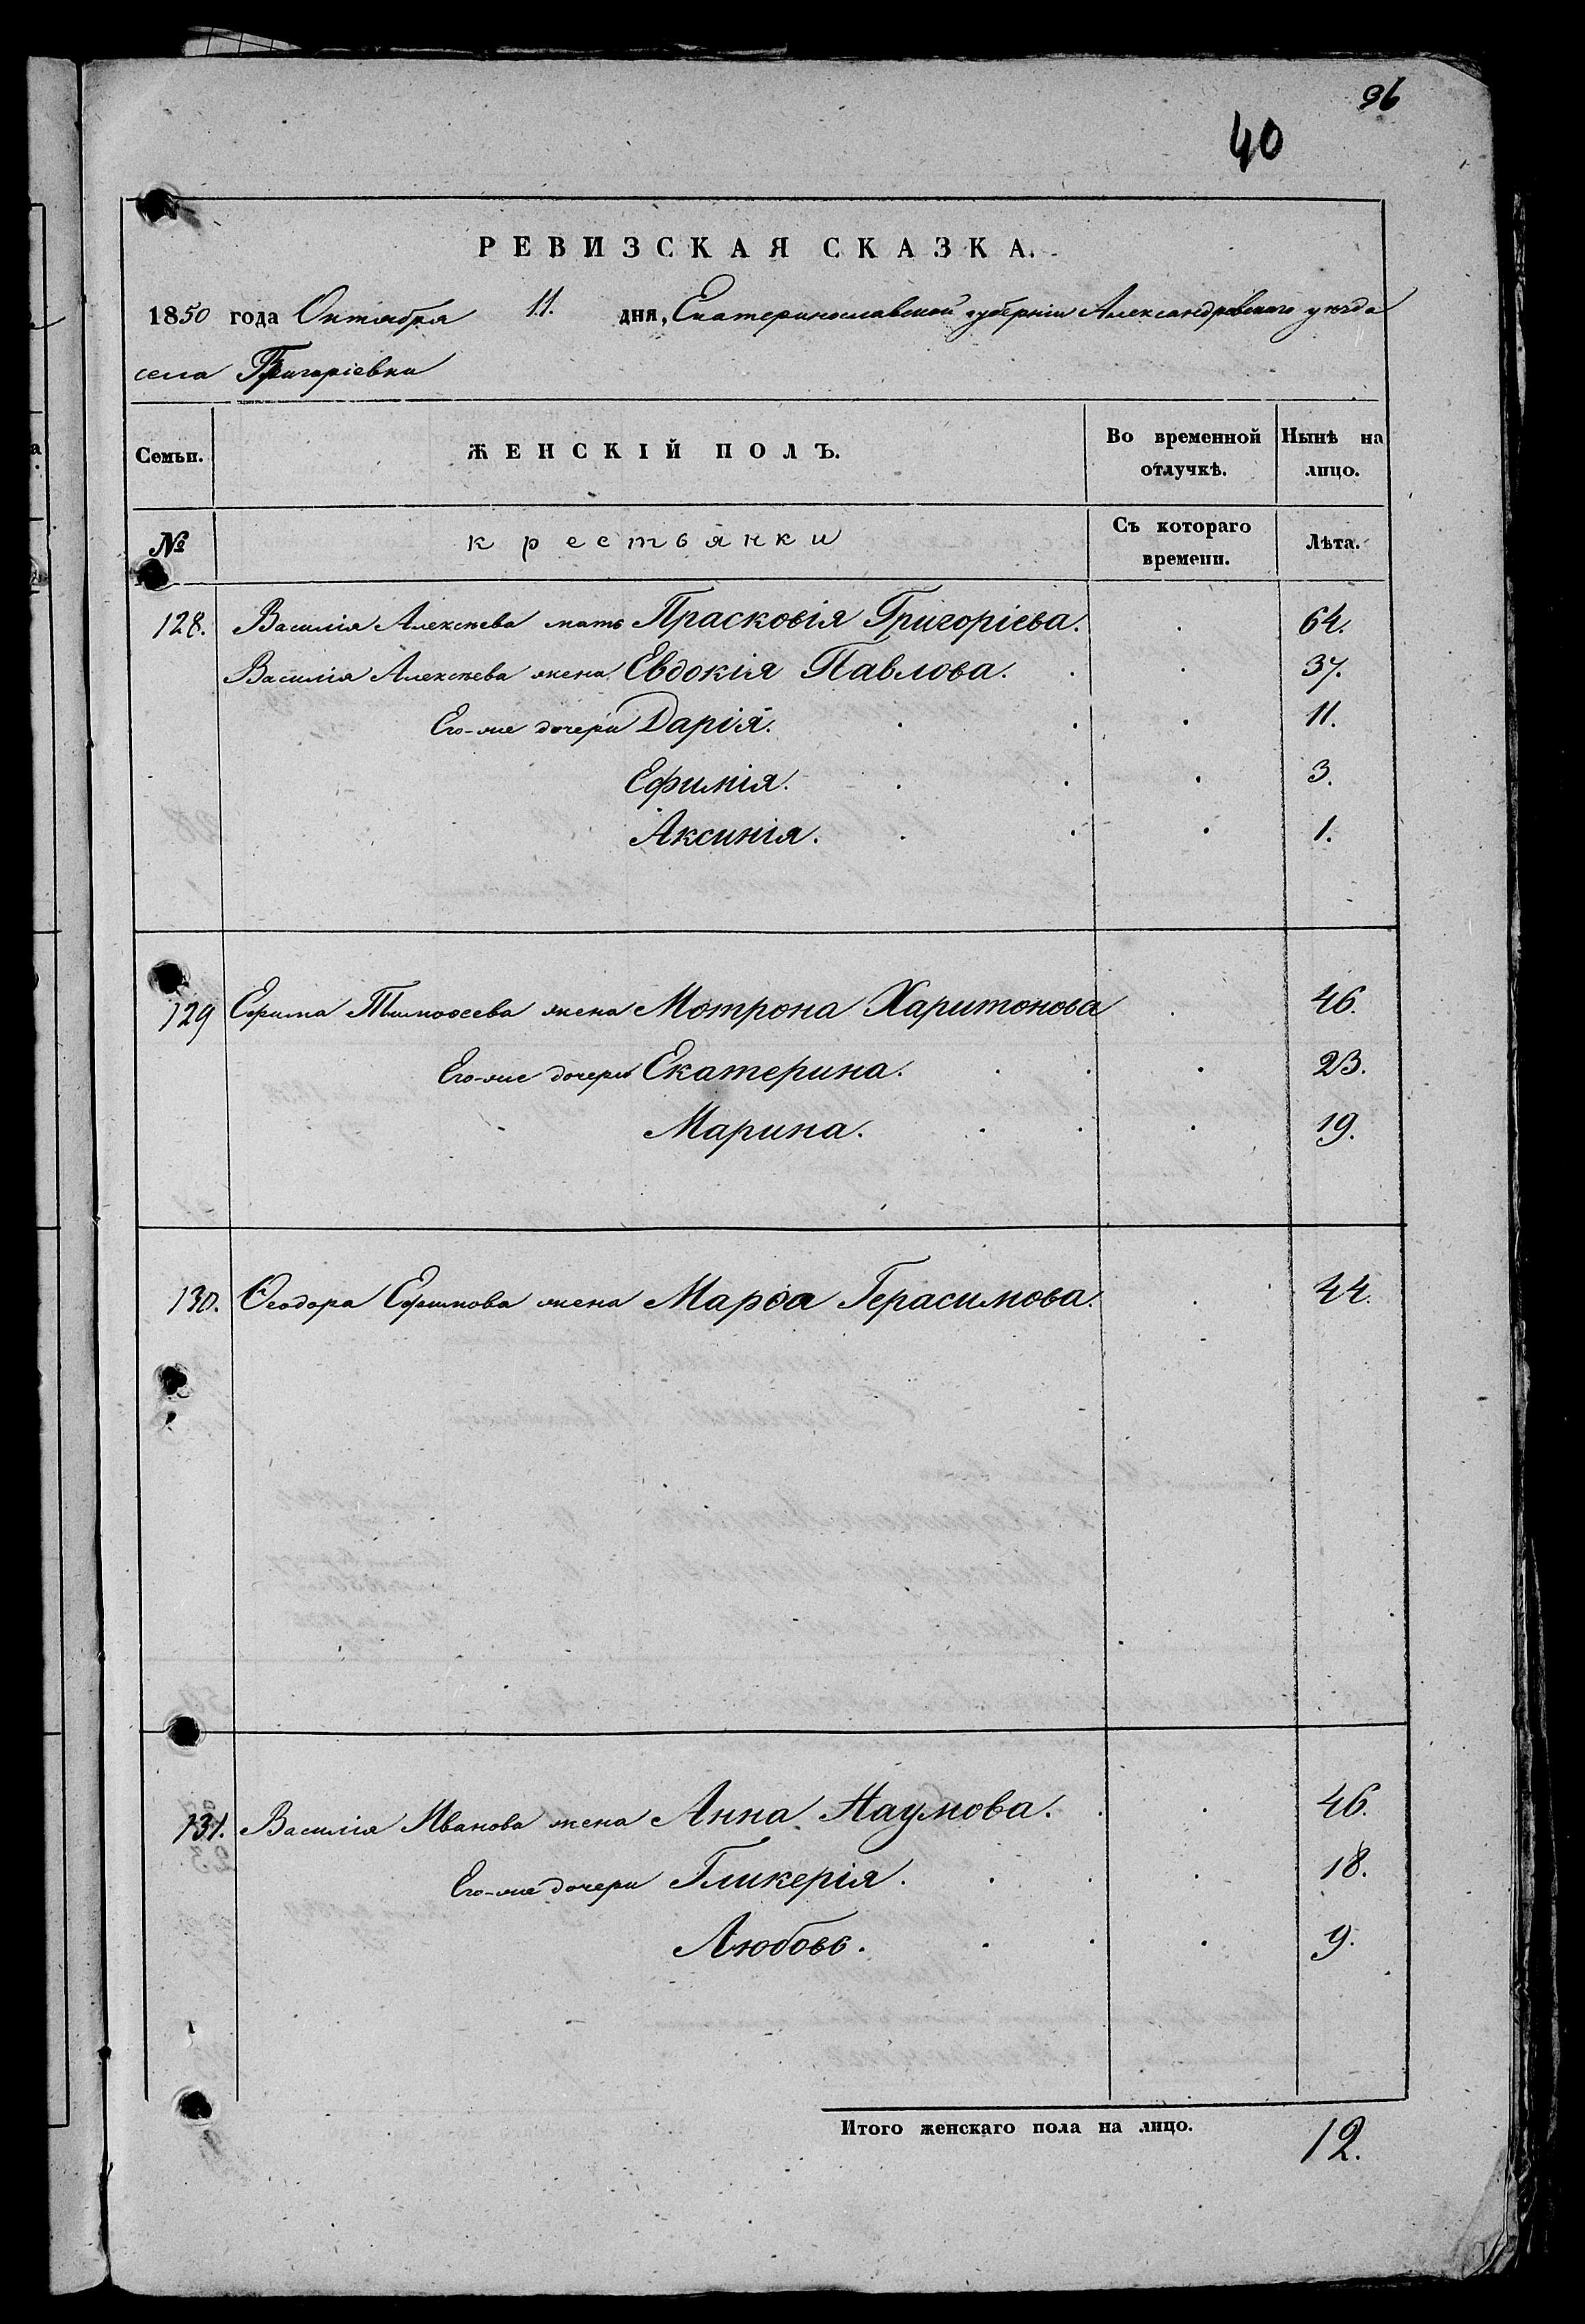 96
40
РЕВИЗСКАЯ СКАЗКА.
1850 года Октября 11. дня, Екатеринославской губерніи Александровскаго уезда
села Григоріевки
Семьи. ЖЕНСКІЙ ПОЛЪ. Во временной отлучкѣ. Нынѣ на лицо.
№ крестьянки Съ котораго времени. Лѣта.
128. Василія Алексѣева мать Прасковія Григоріева. 64.
Василія Алексѣева жена Евдокія Павлова. 37.
Его-же дочери Дарія. 11.
Ефимія. 3.
Аксинія. 1.
129 Ефима Тимоѳеева жена Мотрона Харитонова 46.
Его-же дочери Екатерина. 23.
Марина. 19.
130. Ѳеодора Ефимова жена Марѳа Герасимова. 44.
131. Василія Иванова жена Анна Наумова. 46.
Его-же дочери Гликерія. 18.
Любовь. 9.
Итого женскаго пола на лицо. 12.